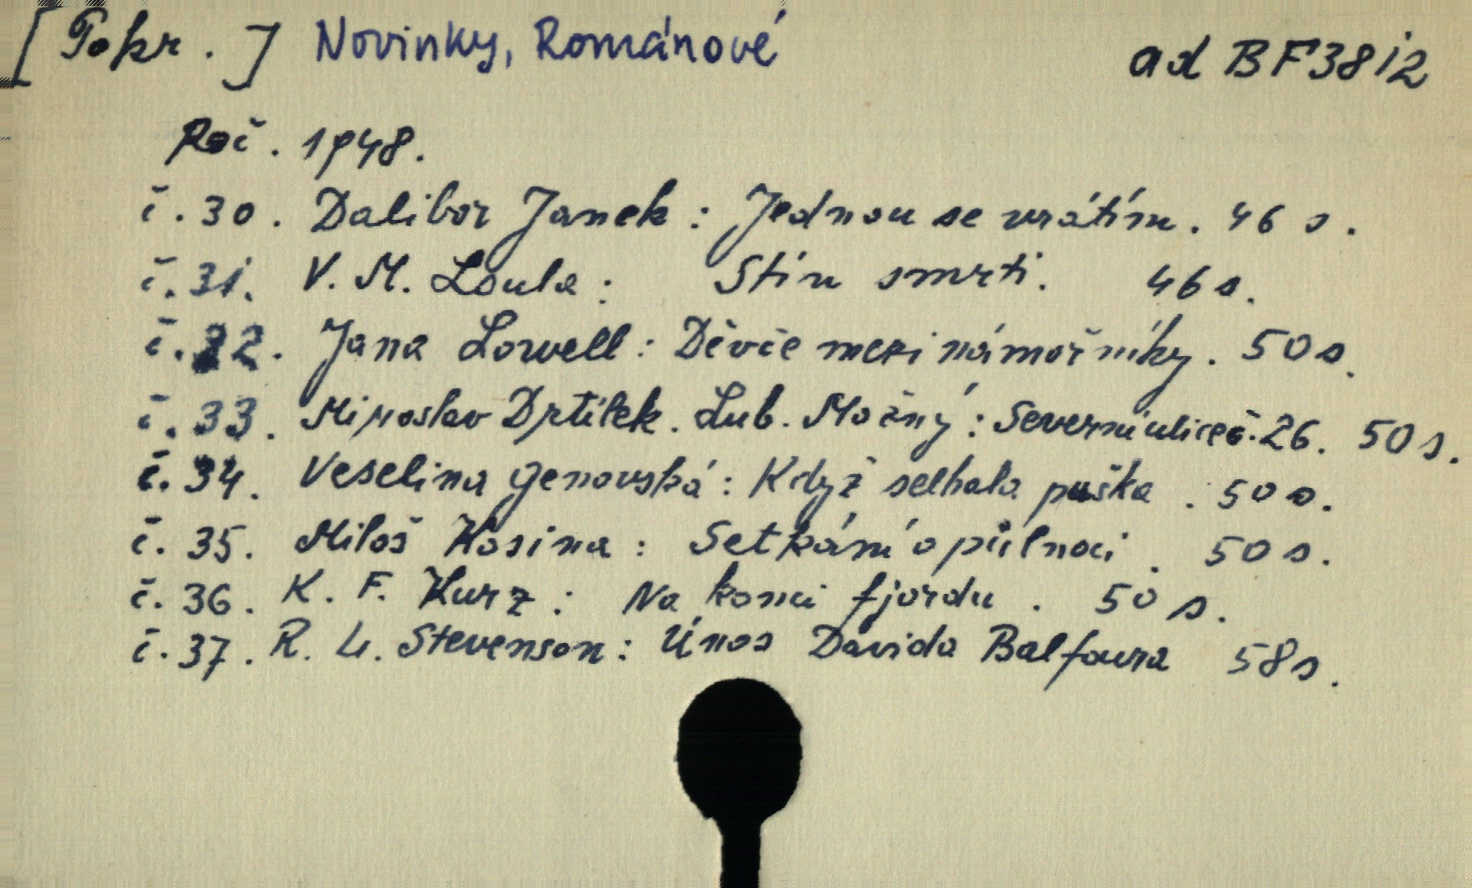 [Pokr.] Novinky, Románové ad BF3812
Roč. 1948.
č. 30. Dalibor Janek: Jednou se vrátím. 46 s.
č. 31. V. M. Loula: Stín smrti. 46 s.
č. 32. Jana Lowell: Děvče mezi námořníky. 50 s.
č. 33. Miroslav Drtílek. Lub. Možný: Severní ulice č. 26. 50 s.
č. 34. Veselina Genovská: Když selhala puška. 50 s.
č. 35. Miloš Kosina: Setkání o půlnoci. 50 s.
č. 36. K. F. Kurz: Na konci fjordu. 50 s.
č. 37. R. L. Stevenson: Únos Davida Balfoura 58 s.